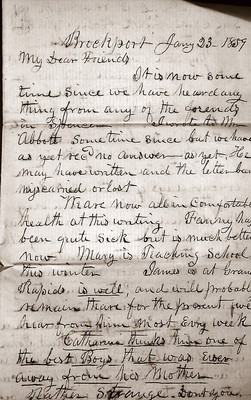 Brockport Jany 23. 1859
My Dear Friends
It is now some
time since we have heard any
thing from any of the friends
in Spencer I wrote to Mr
Abbott Some time since but we have
as yet recd no answer—as yet. He
may have written and the letter ben
miscarried or lost
We are now all in Comfortable
health at this writing Harvey has
been quite sick but is much better
now Mary is Teaching School
this winter James is at Grand
Rapids is well, and will probably
remain there for the present we
hear from him most Evry week
Catharine thinks him one of
the best Boys that was Ever
away from his Mother
Rather Strange. Dont you,